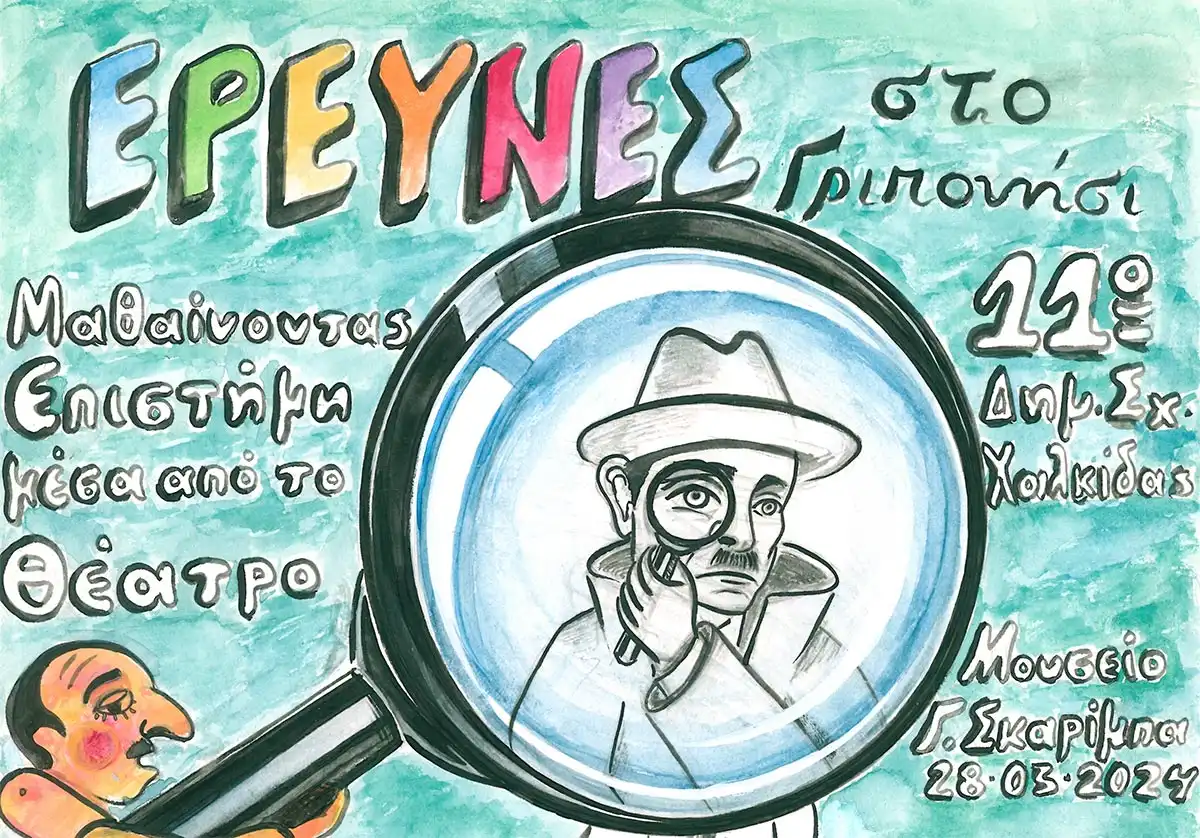 ΕΡΕΥΝΕΣ στο
Γριπονήσι
Μαθαίνοντας
Επιστήμη
μέσα από το
Θέατρο
11ο
Δημ. Σχ.
Χαλκίδας
Μουσείο
Γ. Σκαρίμπα
28·03·2024